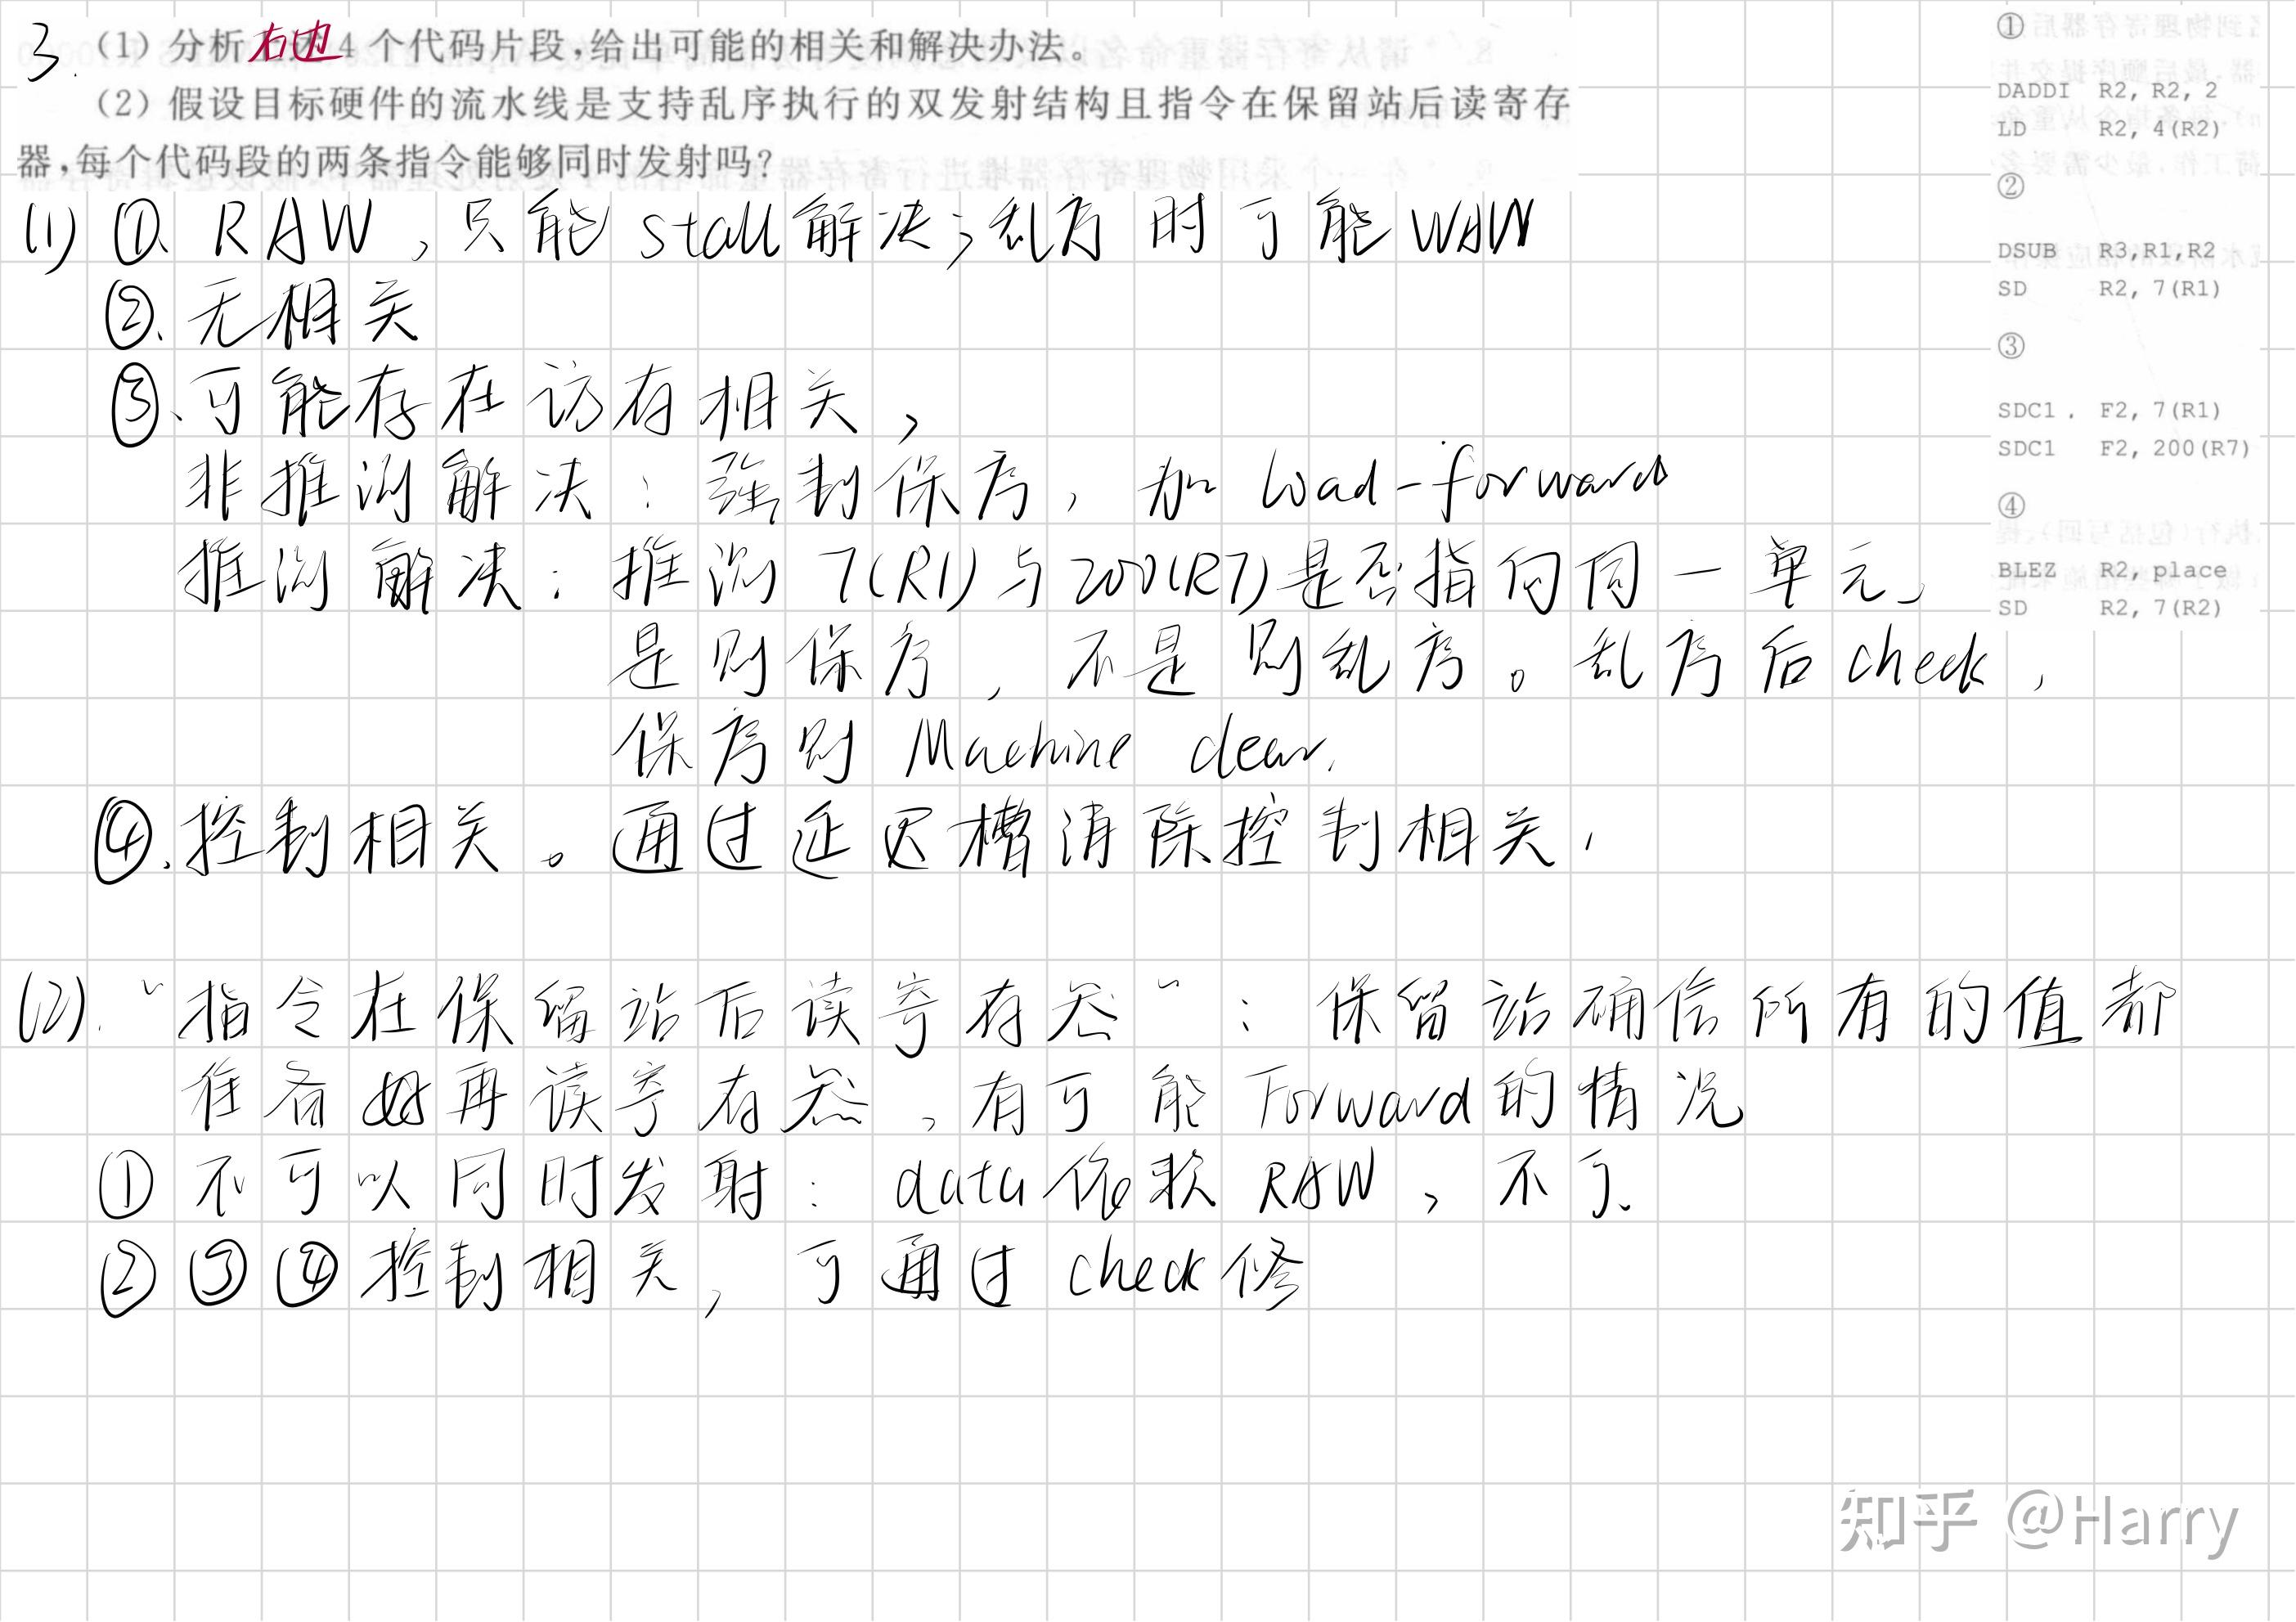 3. (1) 分析右边 4 个代码片段,给出可能的相关和解决办法。
(2) 假设目标硬件的流水线是支持乱序执行的双发射结构且指令在保留站后读寄存
器,每个代码段的两条指令能够同时发射吗?
(1) ①、RAW,只能 stall 解决;乱序时可能 WAW
②、无相关
③、可能存在访存相关,
非推测解决:强制保序,加 load-forward
推测解决:推测 7(R1)与200(R7)是否指向同一单元,
是则保序,不是则乱序。乱序后check,
保序则 Machine clear.
④、控制相关。通过延迟槽消除控制相关,
(2). “指令在保留站后读寄存器”:保留站确信所有的值都
准备好再读寄存器,有可能 Forward的情况
① 不可以同时发射:data依赖 RAW,不可.
② ③ ④ 控制相关,可通过 check 修
①
DADDI R2, R2, 2
LD R2, 4(R2)
②
DSUB R3,R1,R2
SD R2, 7(R1)
③
SDC1 . F2, 7(R1)
SDC1 F2, 200(R7)
④
BLEZ R2, place
SD R2, 7(R2)
知乎 @Harry